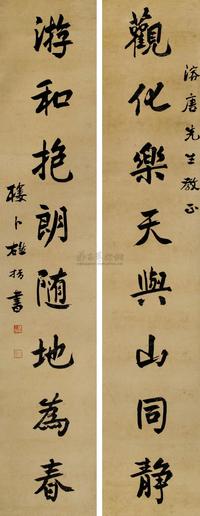 海唐先生教正
觀化樂天與山同靜
游和抱朗随地為春
樓卜
書